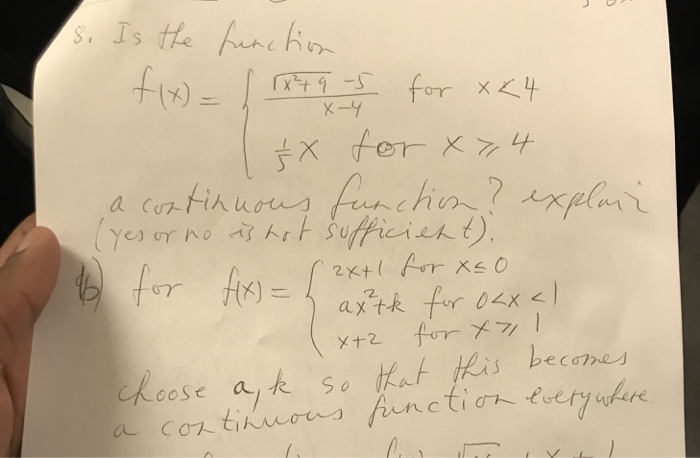 8. Is the function
f(x) = { (√(x²+9) -5)/(x-4) for x<4
1/5 x for x ≥ 4
a continuous function? explain
(yes or no is not sufficient).
b) for f(x) = { 2x+1 for x≤0
ax²+k for 0<x<1
x+2 for x ≥ 1
choose a,k so that this becomes
a continuous function everywhere.